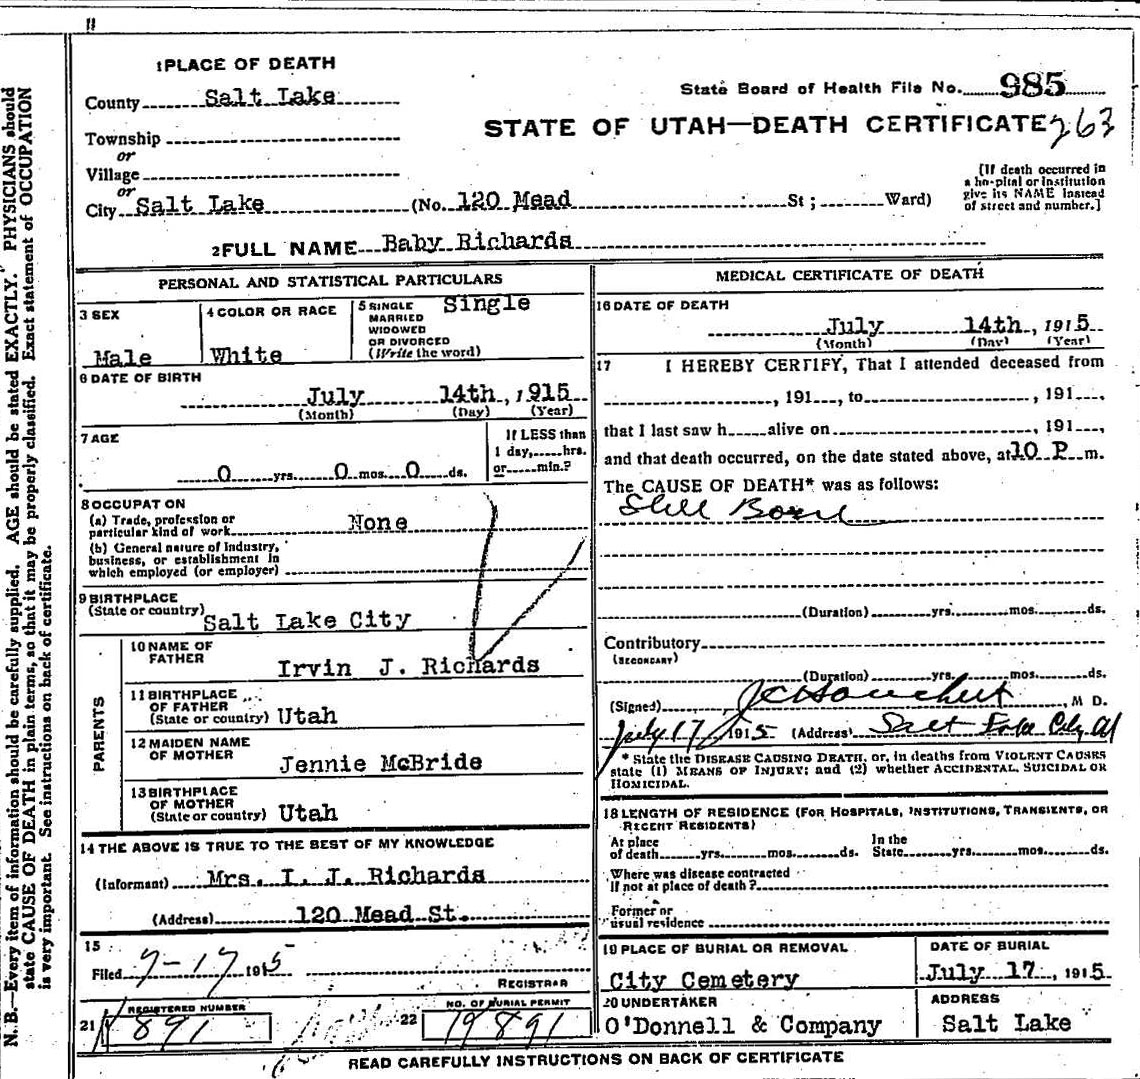 1 PLACE OF DEATH
County Salt Lake
State Board of Health File No. 985
STATE OF UTAH—DEATH CERTIFICATE 263
Township
or
Village
or
City Salt Lake (No. 120 Mead St; Ward)
[If death occurred in
a hospital or institution
give its NAME instead
of street and number.]
2 FULL NAME Baby Richards
PERSONAL AND STATISTICAL PARTICULARS
3 SEX
Male
4 COLOR OR RACE
White
5 SINGLE
MARRIED
WIDOWED
OR DIVORCED
(Write the word)
Single
6 DATE OF BIRTH
July 14th, 1915
(Month) (Day) (Year)
7 AGE
0 yrs. 0 mos. 0 ds.
If LESS than
1 day, hrs.
or min.?
8 OCCUPAT ON
(a) Trade, profession or
particular kind of work None
(b) General nature of Industry,
business, or establishment in
which employed (or employer)
9 BIRTHPLACE
(State or country) Salt Lake City
PARENTS
10 NAME OF
FATHER
Irvin J. Richards
11 BIRTHPLACE
OF FATHER
(State or country) Utah
12 MAIDEN NAME
OF MOTHER
Jennie McBride
13 BIRTHPLACE
OF MOTHER
(State or country) Utah
14 THE ABOVE IS TRUE TO THE BEST OF MY KNOWLEDGE
(Informant) Mrs. I. J. Richards
(Address) 120 Mead St.
15
Filed 7-17 1915
REGISTRAR
REGISTERED NUMBER
21 891
NO. OF BURIAL PERMIT
22 19891
MEDICAL CERTIFICATE OF DEATH
16 DATE OF DEATH
July 14th, 1915
(Month) (Day) (Year)
17 I HEREBY CERTIFY, That I attended deceased from
, 191 , to , 191 ,
that I last saw h alive on , 191 ,
and that death occurred, on the date stated above, at 10 P m.
The CAUSE OF DEATH* was as follows:
Still Born
(Duration) yrs. mos. ds.
Contributory
(SECONDARY)
(Duration) yrs. mos. ds.
(Signed) M D.
July 17 1915 (Address) Salt Lake City
* State the DISEASE CAUSING DEATH, or, in deaths from VIOLENT CAUSES
state (1) MEANS OF INJURY; and (2) whether ACCIDENTAL, SUICIDAL OR
HOMICIDAL.
18 LENGTH OF RESIDENCE (FOR HOSPITALS, INSTITUTIONS, TRANSIENTS, OR
RECENT RESIDENTS)
At place
of death yrs. mos. ds.
In the
State yrs. mos. ds.
Where was disease contracted
if not at place of death?
Former or
usual residence
19 PLACE OF BURIAL OR REMOVAL
City Cemetery
DATE OF BURIAL
July 17, 1915
20 UNDERTAKER
O'Donnell & Company
ADDRESS
Salt Lake
READ CAREFULLY INSTRUCTIONS ON BACK OF CERTIFICATE
N. B.—Every item of information should be carefully supplied. AGE should be stated EXACTLY." PHYSICIANS should
state CAUSE OF DEATH in plain terms, so that it may be properly classified. Exact statement of OCCUPATION
is very important. See instructions on back of certificate.